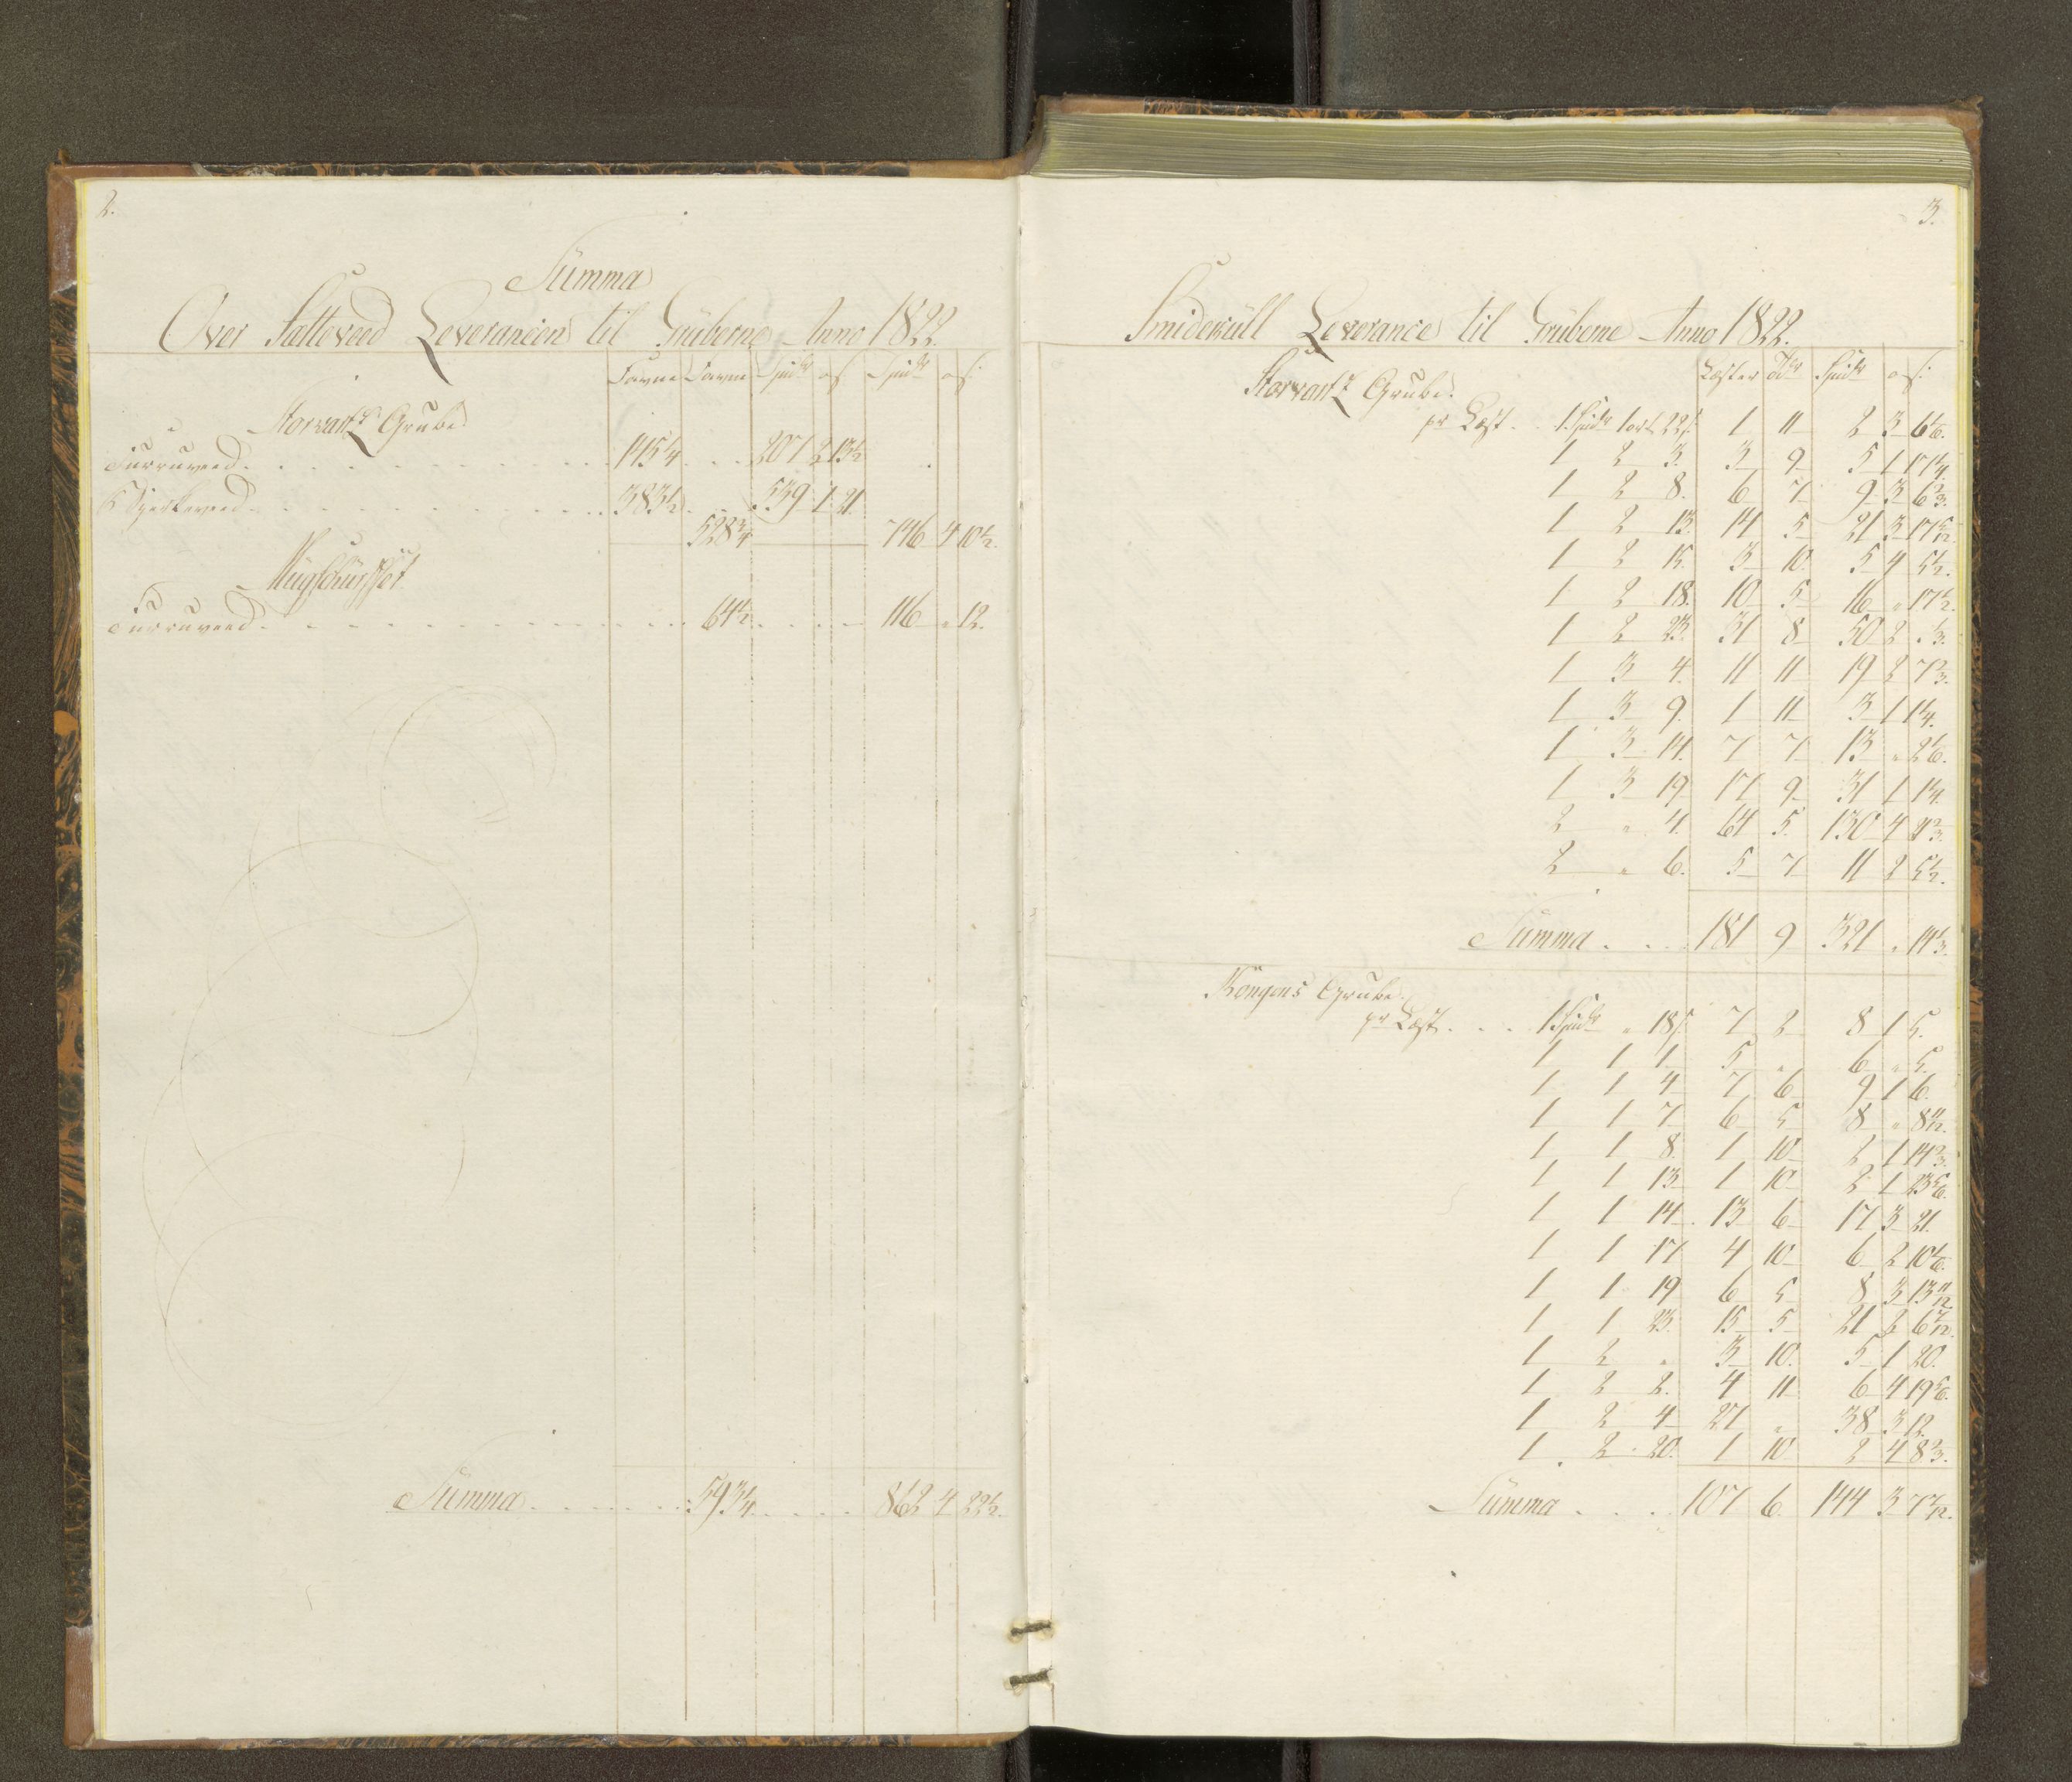 2.
Summa
Over Sætteveed Leverancen til Gruberne Anno 1822.
Favne Favne Spidr o ſ Spidr o ſ:
Storvartz Grube.
Furruveed 145 1/4 207 2 13 1/2
Birkeveed 383 1/2 539 1 21
528 3/4 746 4 10 1/2.
Furruveed 64 1/2 116 " 12.
Summa 593 1/4 862 4 22 1/2.
3.
Smidekull Leverance til Gruberne Anno 1822.
Læster Tdr Spidr o ſ:
Storvartz Grube.
pr Læst 1 Spidr 1 ort 22 ſ 1 11 2 3 6 1/6.
1 2 3. 3 9 5 1 17 1/4.
1 2 8. 6 7 9 3 6 2/3.
1 2 13. 14 5 21 3 17 5/12
1 2 15. 3 10 5 4 5 1/2.
1 2 18. 10 5 16 " 17 1/2.
1 2 23. 31 8 50 2 1/3.
1 3 4. 11 11 19 2 7 2/3.
1 3 9. 1 11 3 1 1 1/4.
1 3 14. 7 7 13 " 2 1/6.
1 3 19 17 9 31 1 1 1/4.
2 " 4. 64 5 130 4 41 2/3.
2 " 6. 5 7 11 2 5 1/2.
Summa 181 9 321 " 14 1/3.
Kongens Grube.
pr Læst 1 Spidr " 18 ſ. 7 2 8 1 5.
1 1 1 5 " 6 " 5.
1 1 4 7 6 9 1 6.
1 1 7 6 5 8 " 8 11/12.
1 1 8. 1 10 2 1 14 2/3.
1 1 13 1 10 2 1 23 5/6.
1 1 14 13 6 17 3 21.
1 1 17 4 10 6 2 10 1/6.
1 1 19 6 5 8 3 13 11/12
1 1 23. 15 5 21 2 6 7/12.
1 2 " 3 10. 5 1 20.
1 2 2. 4 11 6 4 19 5/6.
1 2 4 27 " 38 3 12.
1 2 20. 1 10 2 4 8 2/3.
Summa 107 6. 144 3 7 7/12.